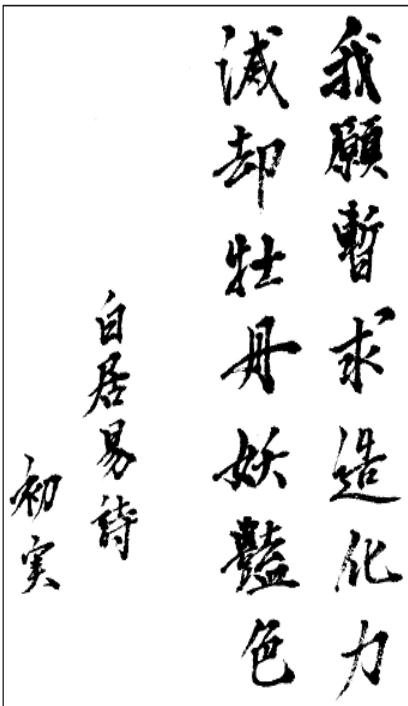 我願暫求造化力
減却牡丹妖豔色
白居易詩
初実